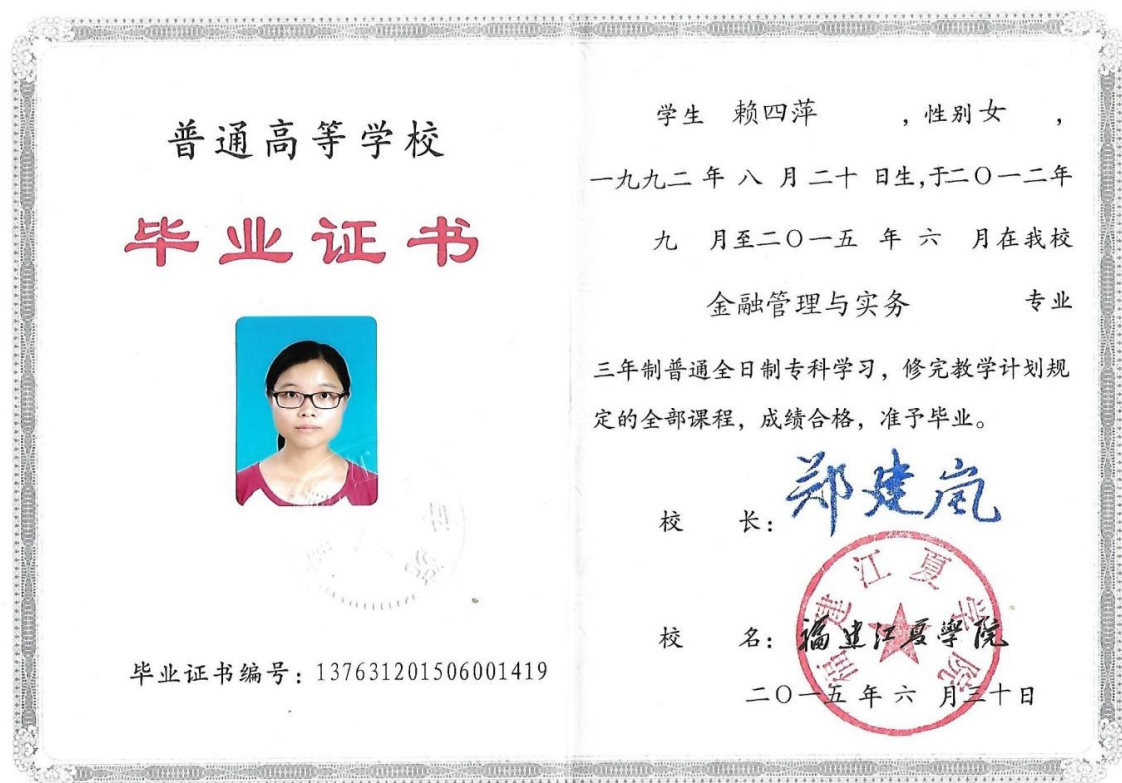 普通高等学校
毕业证书
毕业证书编号：137631201506001419
学生 赖四萍 ，性别 女 ，
一九九二 年 八 月 二十 日生，于二〇一二年
九 月至二〇一五 年 六 月在我校
金融管理与实务 专业
三年制普通全日制专科学习，修完教学计划规
定的全部课程，成绩合格，准予毕业。
校 长：郑建岚
福建江夏学院
校 名：福建江夏學院
二〇一五 年 六 月三十日